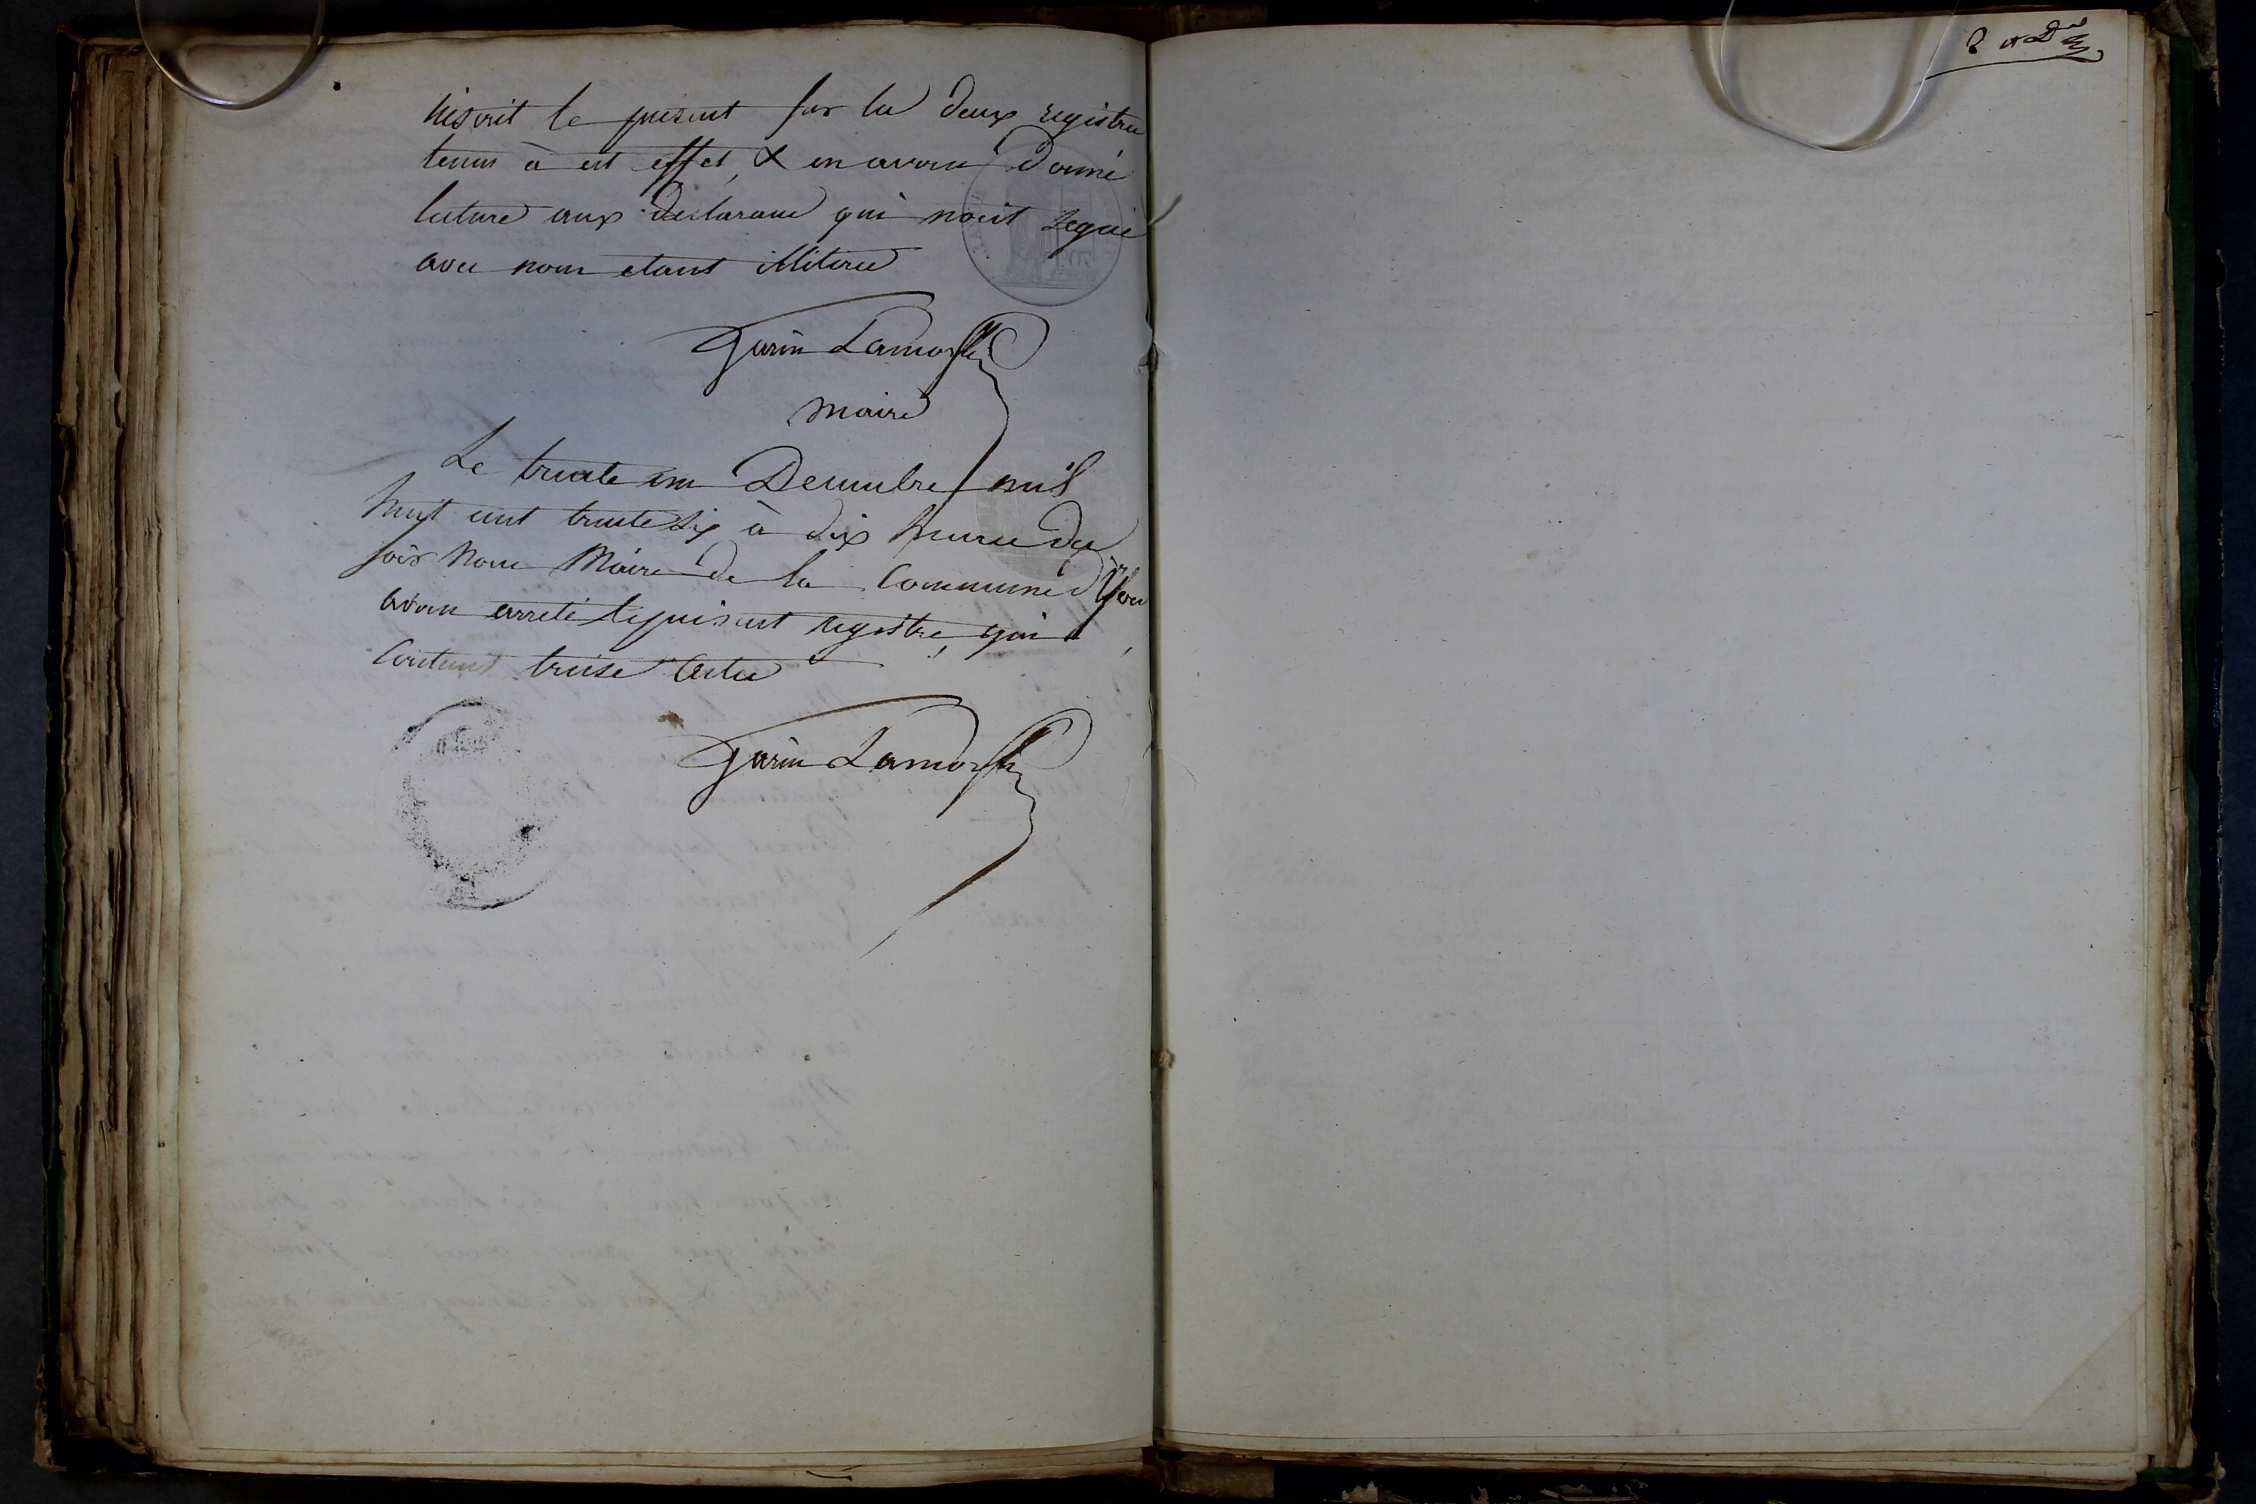 inscrit le présent sur les deux registres
tenus à cet effet, & en avons donné
lecture aux déclarans qui n'ont signé
avec nous étant illiterés
Garin Lamorflan
Maire
Le trente un Decembre mil
huit cent trente six à dix heures du
soir Nous Maire de la Commune d'
avons arrêté le présent registre, qui
Contient treise Actes
Garin Lamorflan